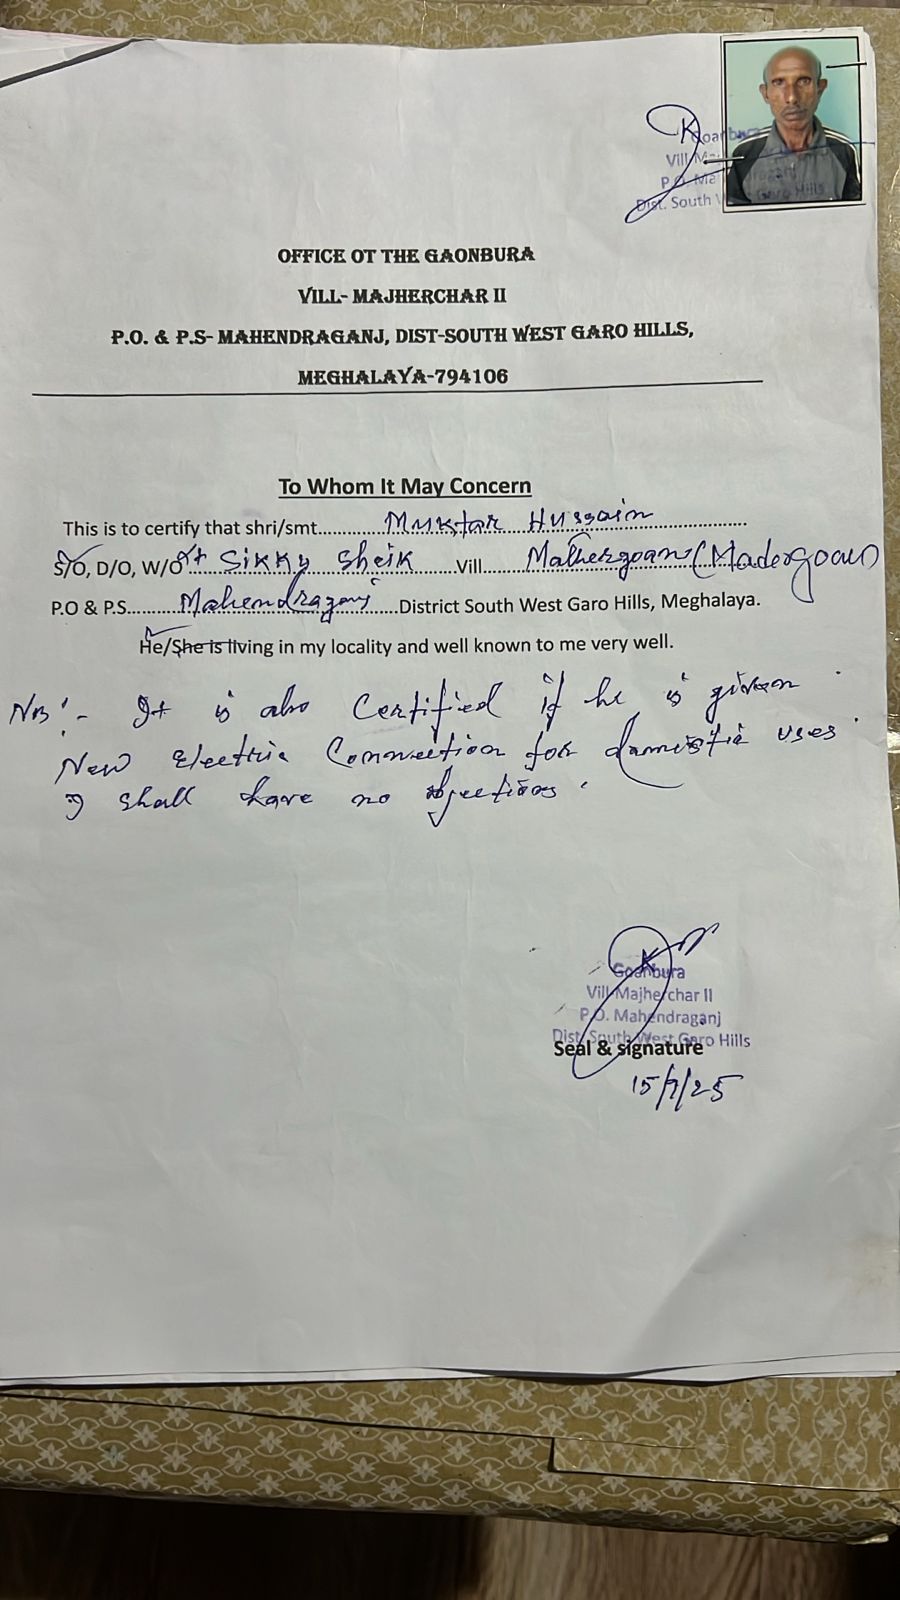 Goanbura
Vill-Ma
P.O. Ma raganj
Dist. South West Garo Hills
OFFICE OT THE GAONBURA
VILL- MAJHERCHAR II
P.O. & P.S- MAHENDRAGANJ, DIST-SOUTH WEST GARO HILLS,
MEGHALAYA-794106
To Whom It May Concern
This is to certify that shri/smt......Muktar Hussain......
S/O, D/O, W/O Lt Sikky Sheik......Vill......Mathergoan (Madergoan)
P.O & P.S......Mahendraganj......District South West Garo Hills, Meghalaya.
He/She is living in my locality and well known to me very well.
NB:- It is also Certified if he is given
New Electric Connection for domistic uses.
I shall have no objections.
Goanbura
Vill-Majherchar II
P.O. Mahendraganj
Dist. South West Garo Hills
Seal & signature
15/7/25